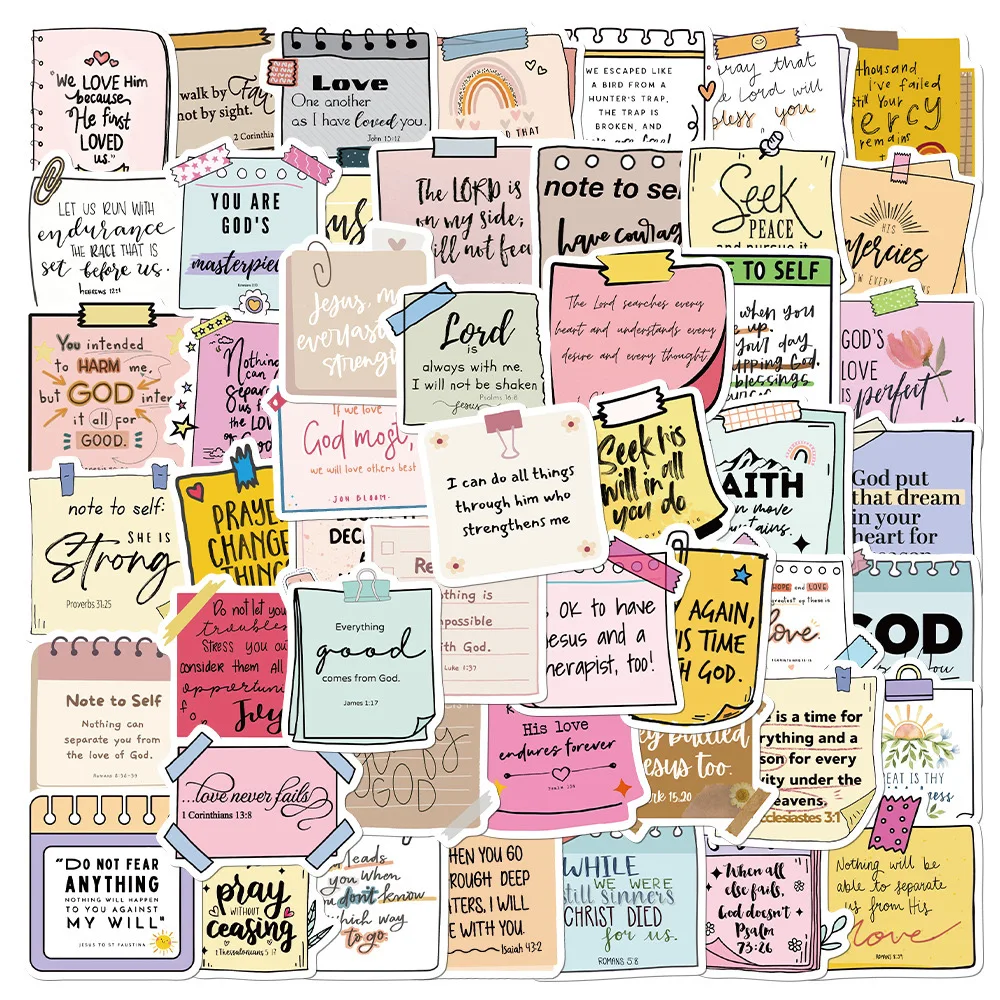 "We LOVE Him
because
He first
LOVED
us."
walk by Fai
not by sight.
2 Corinthia
Love
One another
as I have loved you.
John 15:12
D THAT
WE ESCAPED LIKE
A BIRD FROM A
HUNTER'S TRAP,
THE TRAP IS
BROKEN, AND
pray that
Lord will
bless you
thousand
i've failed
still Your
ercy
remains
LET US RUN WITH
endurance
THE RACE THAT IS
set before us.
HEBREWS 12:1
YOU ARE
GOD'S
masterpie
us
THE LORD IS
on my side;
ill not fea
note to sel
have courag
Seek
PEACE
and pursue it
HIS
Mercies
Jesus, m
everlas
Streng
Lord
is
always with me.
I will not be shaken
Psalms 16:8
Jesus
The Lord searches every
heart and understands every
desire and every thought
E TO SELF
when you
up.
your day
pping God,
blessings
GOD'S
LOVE
is perfect
You intended
to HARM me,
but GOD inten
it all for
GOOD.
Nothin
can
separ
us f
the LO
If we love
God most,
we will love others best
-JON BLOOM-
I can do all things
through him who
strengthens me
Seek his
will in all
you do
AITH
an move
ntains.
God put
that dream
in your
heart for
note to self:
SHE IS
Strong
Proverbs 31:25
PRAYE
CHANGE
THING
DEC
Re
Do not let you
troubles
stress you ou
consider them all
opportun
fo
Joy
Everything
good
comes from God.
James 1:17
thing is
possible
ith God.
Luke 1:37
OK to have
esus and a
herapist, too!
AGAIN,
IS TIME
H GOD.
HOPE and LOVE
greatest of these is
love.
GOD
you
Note to Self
Nothing can
separate you from
the love of God.
Romans 8:38-39
...love never fails
1 Corinthians 13:8
GOD
His love
endures forever
Psalm 136
ey bullied
esus too.
rk 15.20
e is a time for
rything and a
son for every
vity under the
eavens.
cclesiastes 3:1
EAT IS THY
ness
"DO NOT FEAR
ANYTHING
NOTHING WILL HAPPEN
TO YOU AGAINST
MY WILL"
JESUS TO ST FAUSTINA
pray
WITHOUT
ceasing
1 Thessalonians 5:17
leads
you when
don't know
which way
to go.
HEN YOU GO
ROUGH DEEP
TERS, I WILL
E WITH YOU.
Isaiah 43:2
WHILE
WE WERE
still sinners
CHRIST DIED
for us.
ROMANS 5:8
When all
else fails,
God doesn't
Psalm
73:26
Nothing will be
able to separate
us from His
love
ROMANS 8:39